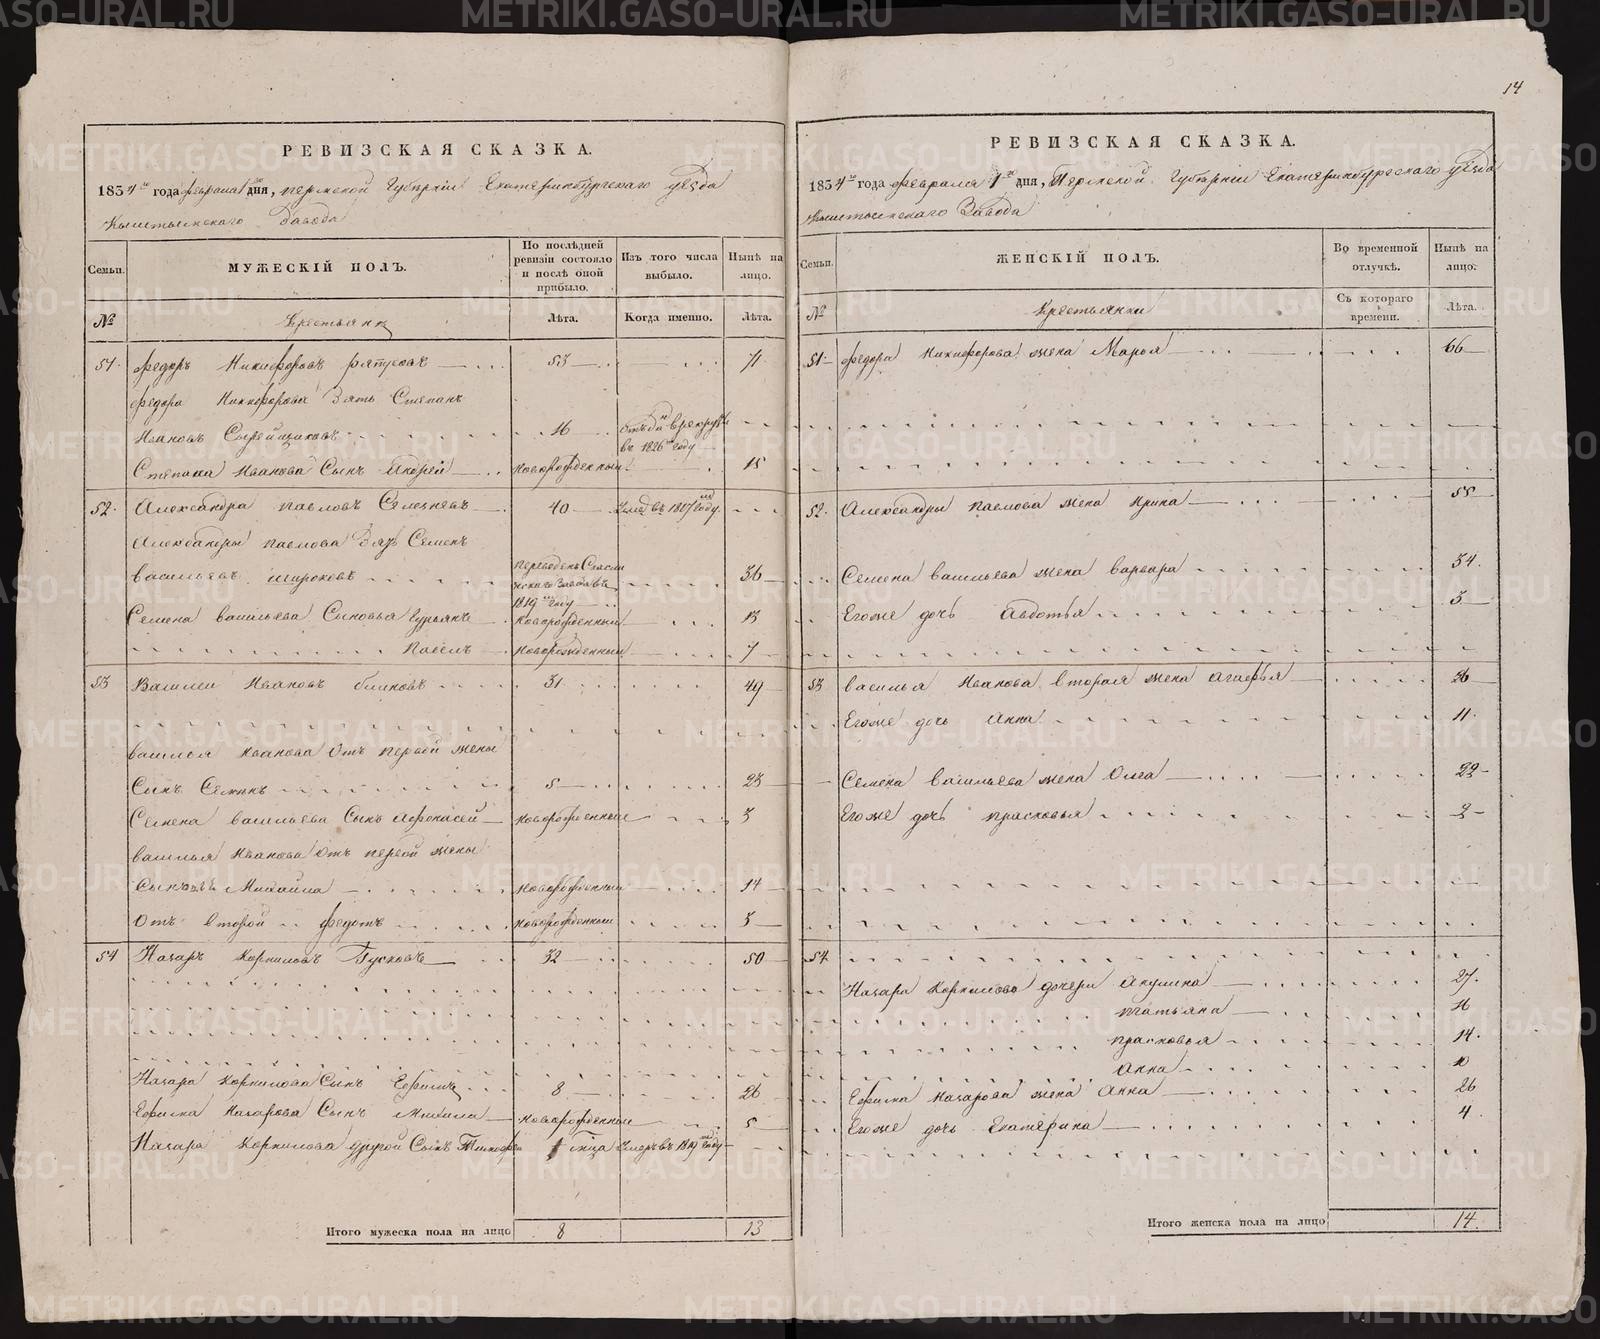 14
РЕВИЗСКАЯ СКАЗКА.
1834 го года февраля 1 дня, пермской Губернiи Екатеринбургскаго уезда
Кыштымскаго Завода
Семьи.
МУЖЕСКІЙ ПОЛЪ.
По послѣдней ревизіи состояло и послѣ оной прибыло.
Изъ того числа выбыло.
Нынѣ на лицо.
№
Крестьяне
Лѣта.
Когда именно.
Лѣта.
51. федоръ Никифоровъ 53 71
федора Никифорова Зять Степанъ
Ивановъ 16 отъданъ в рекруты в 1826 м году
Степана Иванова Сынъ Андрей новорожденный 15
52. Александра павловъ Селезневъ 40 году
Александры павлова Зять Семенъ
васильевъ широковъ переведенъ завода в 1819 м году 36
Семена васильева Сыновья Гурьянъ новорожденный 13
павелъ новорожденный 7
53 Василеи Ивановъ блиновъ 31 49
василья Иванова Отъ первой жены
Сынъ Семенъ 5 23
Семена васильева Сынъ Афонасей новорожденный 3
василья Иванова Отъ первой жены
Михайла новорожденный 14
Отъ второй федотъ новорожденный 3
54 Назаръ Корниловъ Гусковъ 32 50
Назара Корнилова Сынъ Ефимъ 8 26
Ефима Назарова Сынъ новорожденный 5
Назара Корнилова другой Сынъ 1 году
Итого мужеска пола на лицо 8 13
РЕВИЗСКАЯ СКАЗКА.
1834 го года февраля 1 го дня, Пермской Губернiи Екатеринбургскаго уезда
Кыштымскаго Завода
Семьи.
ЖЕНСКІЙ ПОЛЪ.
Во временной отлучкѣ.
Нынѣ на лицо.
№
Крестьянки
Съ котораго времени.
Лѣта.
51 федора Никифорова жена Марья 66
52. Александры павлова жена Ирина 55
Семена васильева жена варвара 34.
Егоже дочь Авдотья 3
53 василья Иванова вторая жена агафья 36
Егоже дочь Анна 11.
Семена васильева жена Олга 22
Егоже дочь прасковья 2
54.
Назара Корнилова дочери Акулина 27.
татьяна 16
прасковья 14.
Анна 10
Ефима Назарова жена Анна 26
Егоже дочь Екатерина 4.
Итого женска пола на лицо 14.
METRIKI.GASO-URAL.RU